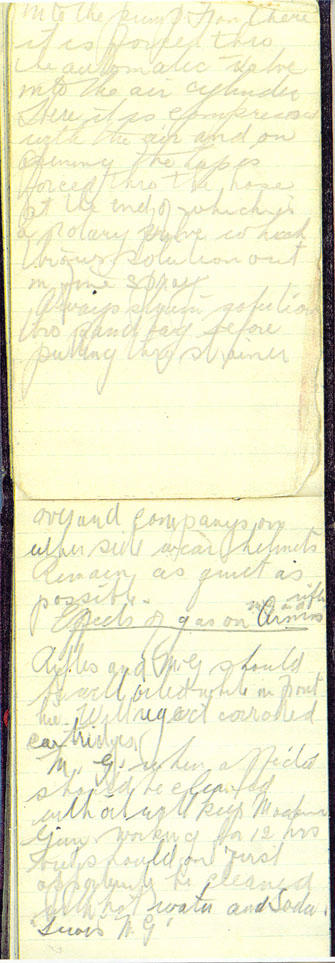 into the pump. From there
it is forced thro
the automatic valve
into the air cylinder
where it is compressed
with the air and on
opening the tap is
forced thro the hose
at the end of which is
a rotary which
throws solution out
in fine spray
Always strain solution
thro sand bag before
putting thro strainer
and companys on
either side wear helmets
Remain as quiet as
possible.
Effects of gas on Arms
Rifles and M.G should
be well oiled while in front
line. Will eject corroded
cartridges
M. G. when affected
should be cleaned
with oil will keep Machine
Gun working for 12 hrs
but should on first
opportunity be cleaned
with hot water and Soda.
Lewis M G